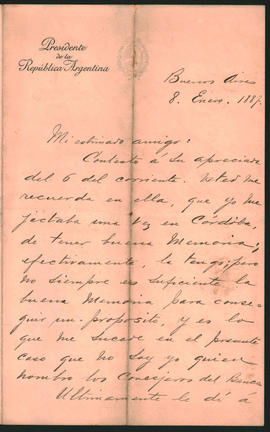 Presidente
de la
República Argentina
Buenos Aires
8. Enero. 1887.
Mi estimado amigo:
Contesto á su apreciada
del 6 del corriente. Usted me
recuerda en ella, que yo me
jactaba una vez en Córdoba,
de tener buena memoria;
efectivamente, la tengo, pero
no siempre es suficiente la
buena memoria para conse-
guir un propósito, y es lo
que me sucede en el presente
caso que no soy yo quien
nombro los Consejeros del Banco
Ultimamente le dí á